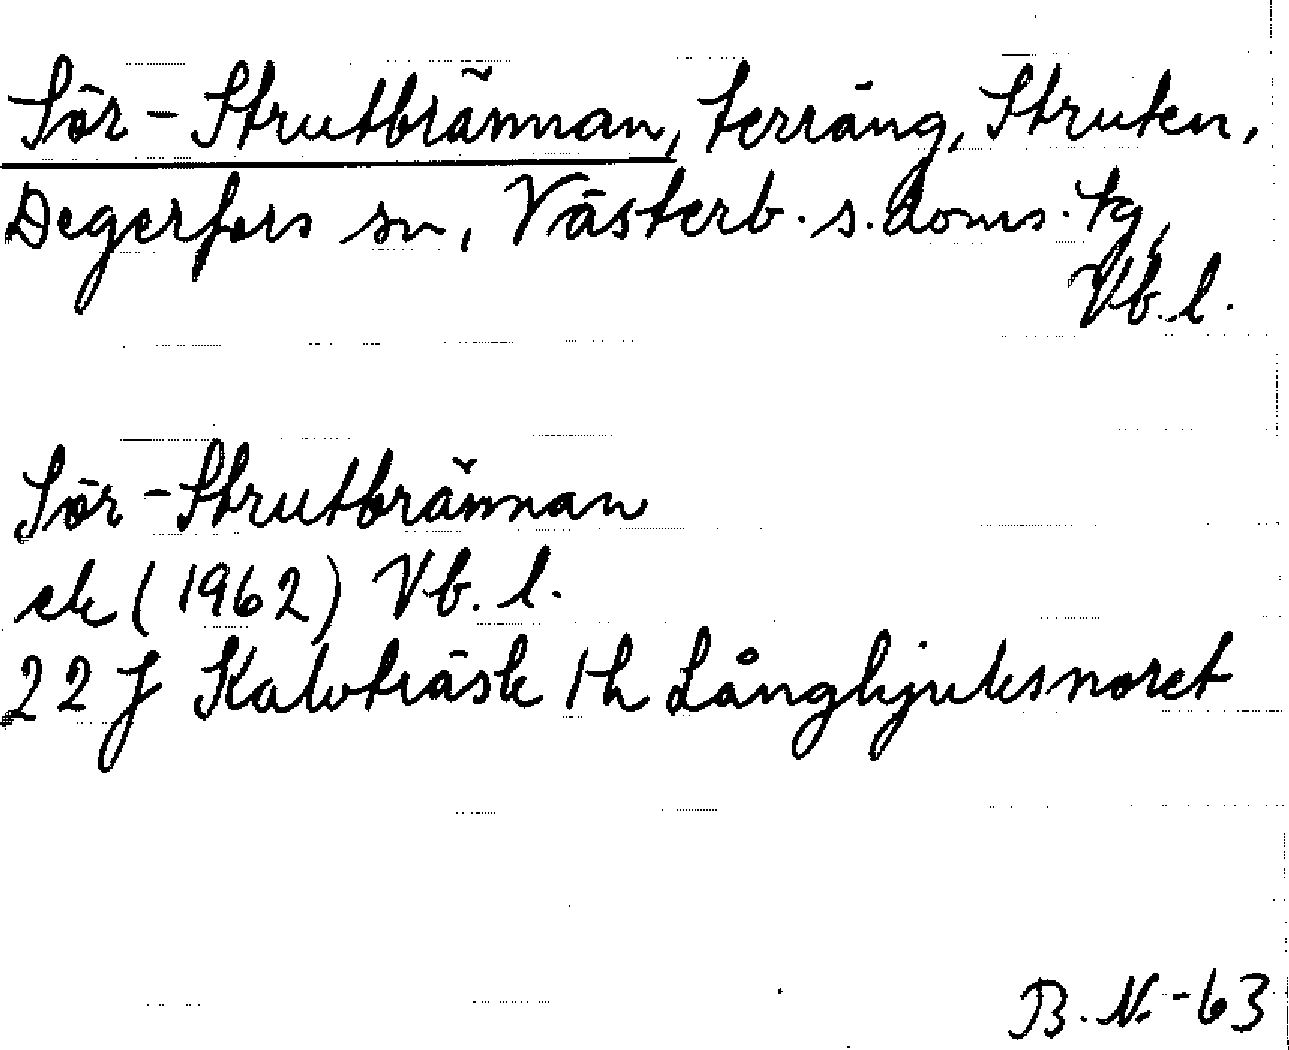 Sör-Strutbrännan, terräng, Struten,
Degerfors sn, Västerb. s. doms. tg,
Vb. l.
Sör-Strutbrännan
ek (1962) Vb. l.
22 J Kalvträsk 1 h Långhjuksnoret
B. N. -63